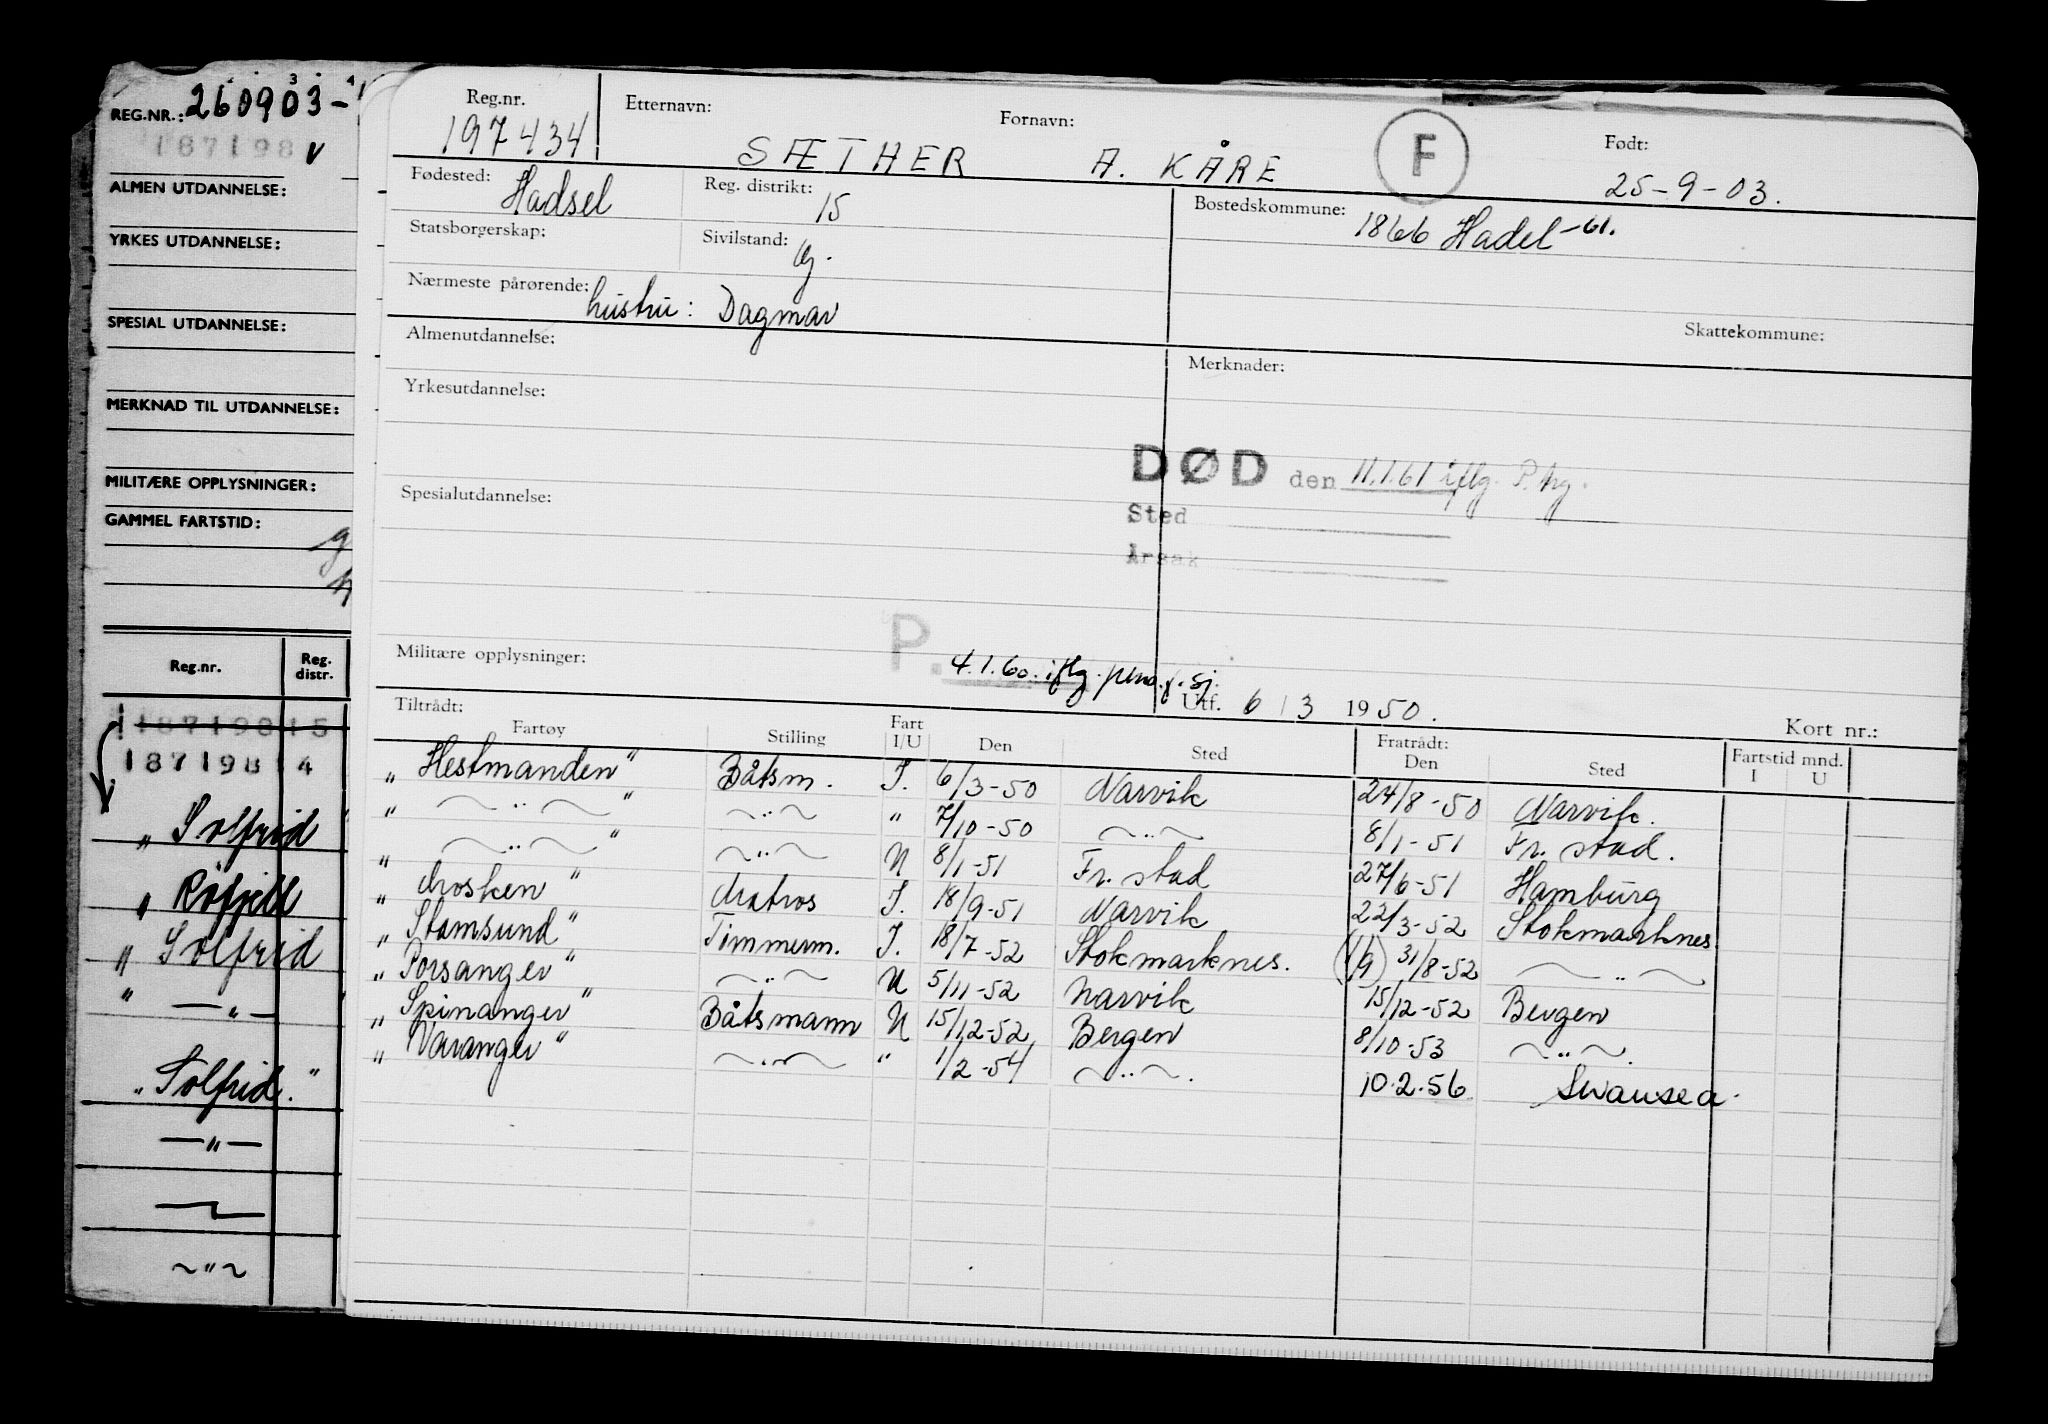 REG.NR.: 260903-
187198 v
ALMEN UTDANNELSE:
YRKES UTDANNELSE:
SPESIAL UTDANNELSE:
MERKNAD TIL UTDANNELSE:
MILITÆRE OPPLYSNINGER:
GAMMEL FARTSTID:
Reg.nr. Reg. distr.
187198 15
187198 4
„ Solfrid
„ Röfjell
„ Solfrid
" — „ —
„ Solfrid. "
— „ —
~ „ ~
Reg.nr. 197434 Etternavn: SÆTHER Fornavn: A. KÅRE F Født: 25-9-03.
Fødested: Hadsel Reg. distrikt: 15 Bostedskommune: 1866 Hadel -61.
Statsborgerskap: Sivilstand: g.
Nærmeste pårørende: hustru: Dagmar
Skattekommune:
Almenutdannelse: Merknader:
Yrkesutdannelse:
DØD den 11.1.61 iflg. P.
Spesialutdannelse: Sted
Årsak
Militære opplysninger: P. 4.1.60. iflg. pens.f. sj.
Utf. 6 / 3 1950.
Tiltrådt: Fratrådt: Kort nr.:
Fartøy Stilling Fart I/U Den Sted Den Sted Fartstid mnd. I U
„ Hestmanden " Båtsm. I. 6/3-50 Narvik 24/8-50 Narvik.
„ ~ „ ~ " ~ „ ~ " 7/10-50 ~ „ ~ 8/1-51 Fr. stad.
„ ~ „ ~ " ~ „ ~ U 8/1-51 Fr. stad 27/6-51 Hamburg
„ Mosken " Matros I. 18/9-51 Narvik 22/3-52 Stokmarknes
„ Stamsund " Timmerm. I. 18/7-52 Stokmarknes. (1/9) 31/8-52 ~ „ ~
„ Porsanger " ~ „ ~ U 5/11-52 Narvik 15/12-52 Bergen
„ Spinanger " Båtsmann U 15/12-52 Bergen 8/10-53 ~ „ ~.
„ Varanger " ~ „ ~ " 1/2-54 ~ „ ~. 10.2.56 Swansea.